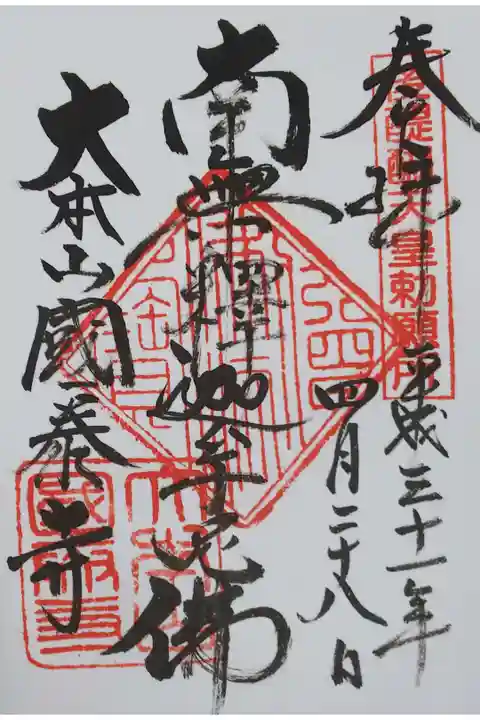 奉拝
平成三十一年
四月二十八日
南無釋迦牟尼佛
大本山國泰寺
後醍醐天皇勅願所